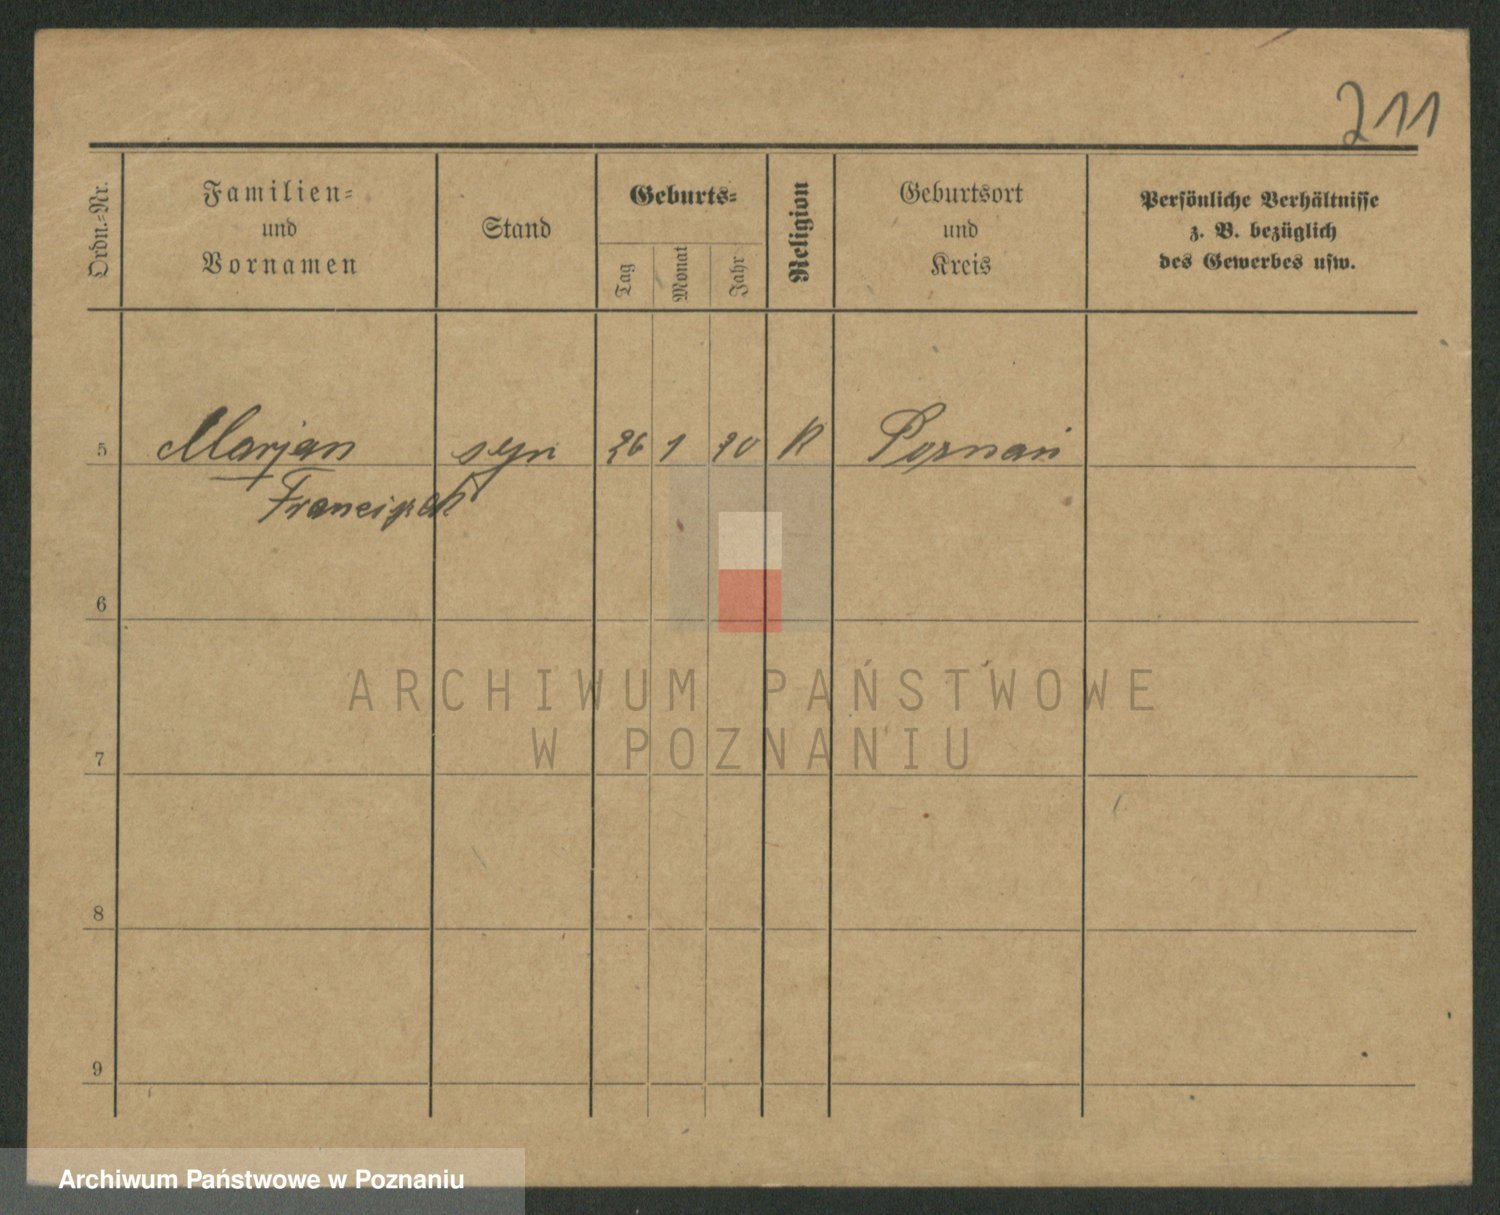 211
Ordn.-Nr.
Familien-
und
Vornamen
Stand
Geburts-
Tag
Monat
Jahr
Religion
Geburtsort
und
Kreis
Persönliche Verhältnisse
z. B. bezüglich
des Gewerbes usw.
5 Marjan syn 26 1 20 K Poznań
Franciszek
6
7
8
9
ARCHIWUM PAŃSTWOWE
W POZNANIU
Archiwum Państwowe w Poznaniu